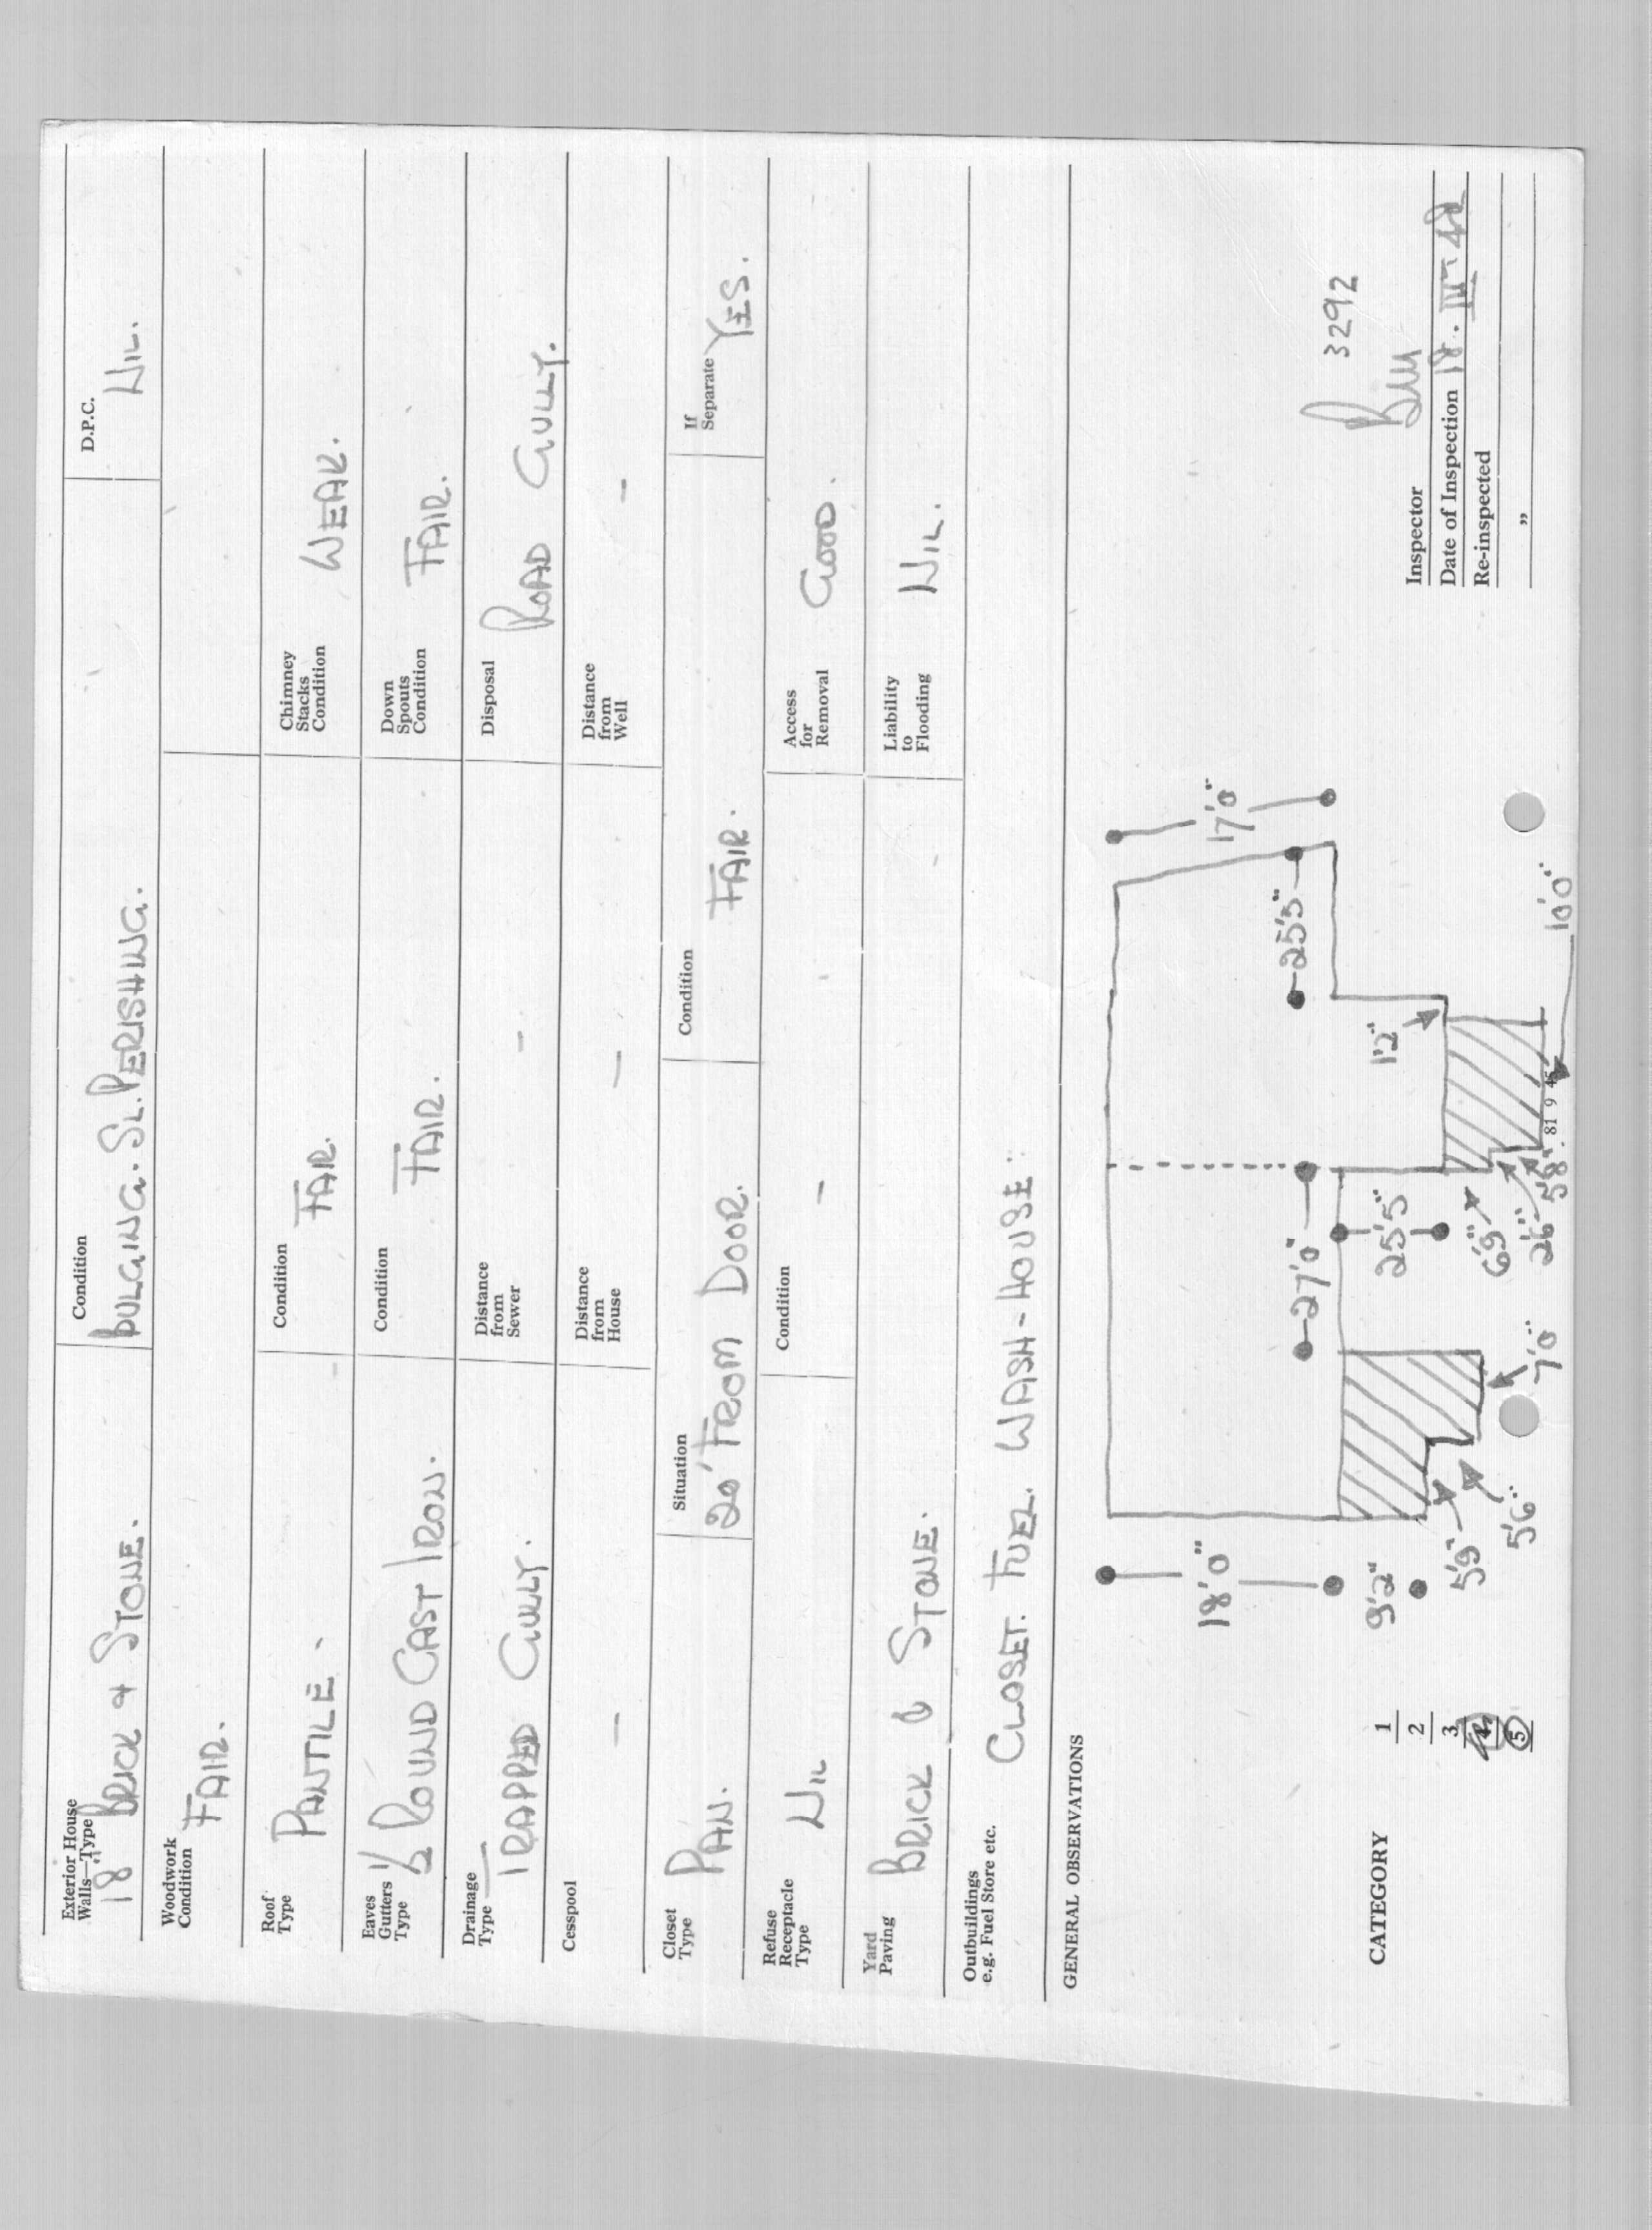 Exterior House
Walls—Type Condition D.P.C.
18" BRICK & STONE. BULGING. SL. PERISHING. NIL.
Woodwork
Condition
FAIR.
Roof
Type Condition Chimney
Stacks
Condition
PANTILE. FAIR. WEAK.
Eaves
Gutters
Type Condition Down
Spouts
Condition
½ ROUND CAST IRON. FAIR. FAIR.
Drainage
Type Distance
from
Sewer Disposal
TRAPPED GULLY. - ROAD GULLY.
Cesspool Distance
from
House Distance
from
Well
- - -
Closet
Type Situation Condition If
Separate
PAN. 20' FROM DOOR. FAIR. YES.
Refuse
Receptacle
Type Condition Access
for
Removal
NIL - GOOD.
Yard
Paving Liability
to
Flooding
BRICK & STONE. NIL.
Outbuildings
e.g. Fuel Store etc.
CLOSET. FUEL. WASH-HOUSE.
GENERAL OBSERVATIONS
18'0"
17'0"
27'0"
25'3"
9'2"
25'5"
1'2"
5'9"
5'6"
7'0"
6'9"
2'6"
5'8"
10'0"
81 9 45
CATEGORY 1
2
3
4
5
3292
Inspector
Date of Inspection 18. III 48
Re-inspected
"